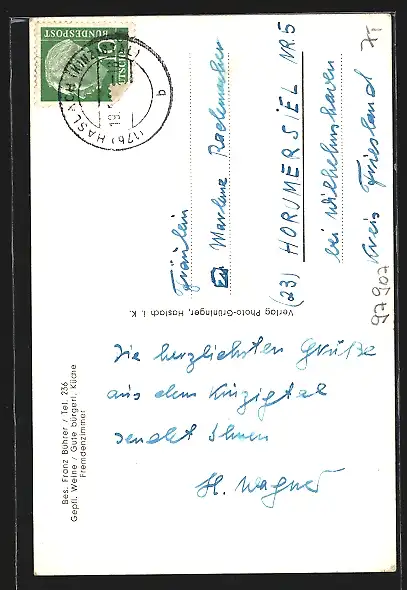 DEUTSCHE
BUNDESPOST
(17b) HASLACH (KINZIGTAL)
19.
b
Fräulein
Marlene Rademacher
(23) HORUMERSIEL NR 5
bei Wilhelmshaven
Kreis Friesland
97907
Verlag Photo-Grüninger, Haslach i. K.
Die herzlichsten Grüße
aus dem Kinzigtal
sendet Ihnen
H. Wagner
Bes. Franz Bührer / Tel. 236
Gepfl. Weine / Gute bürgerl. Küche
Fremdenzimmer